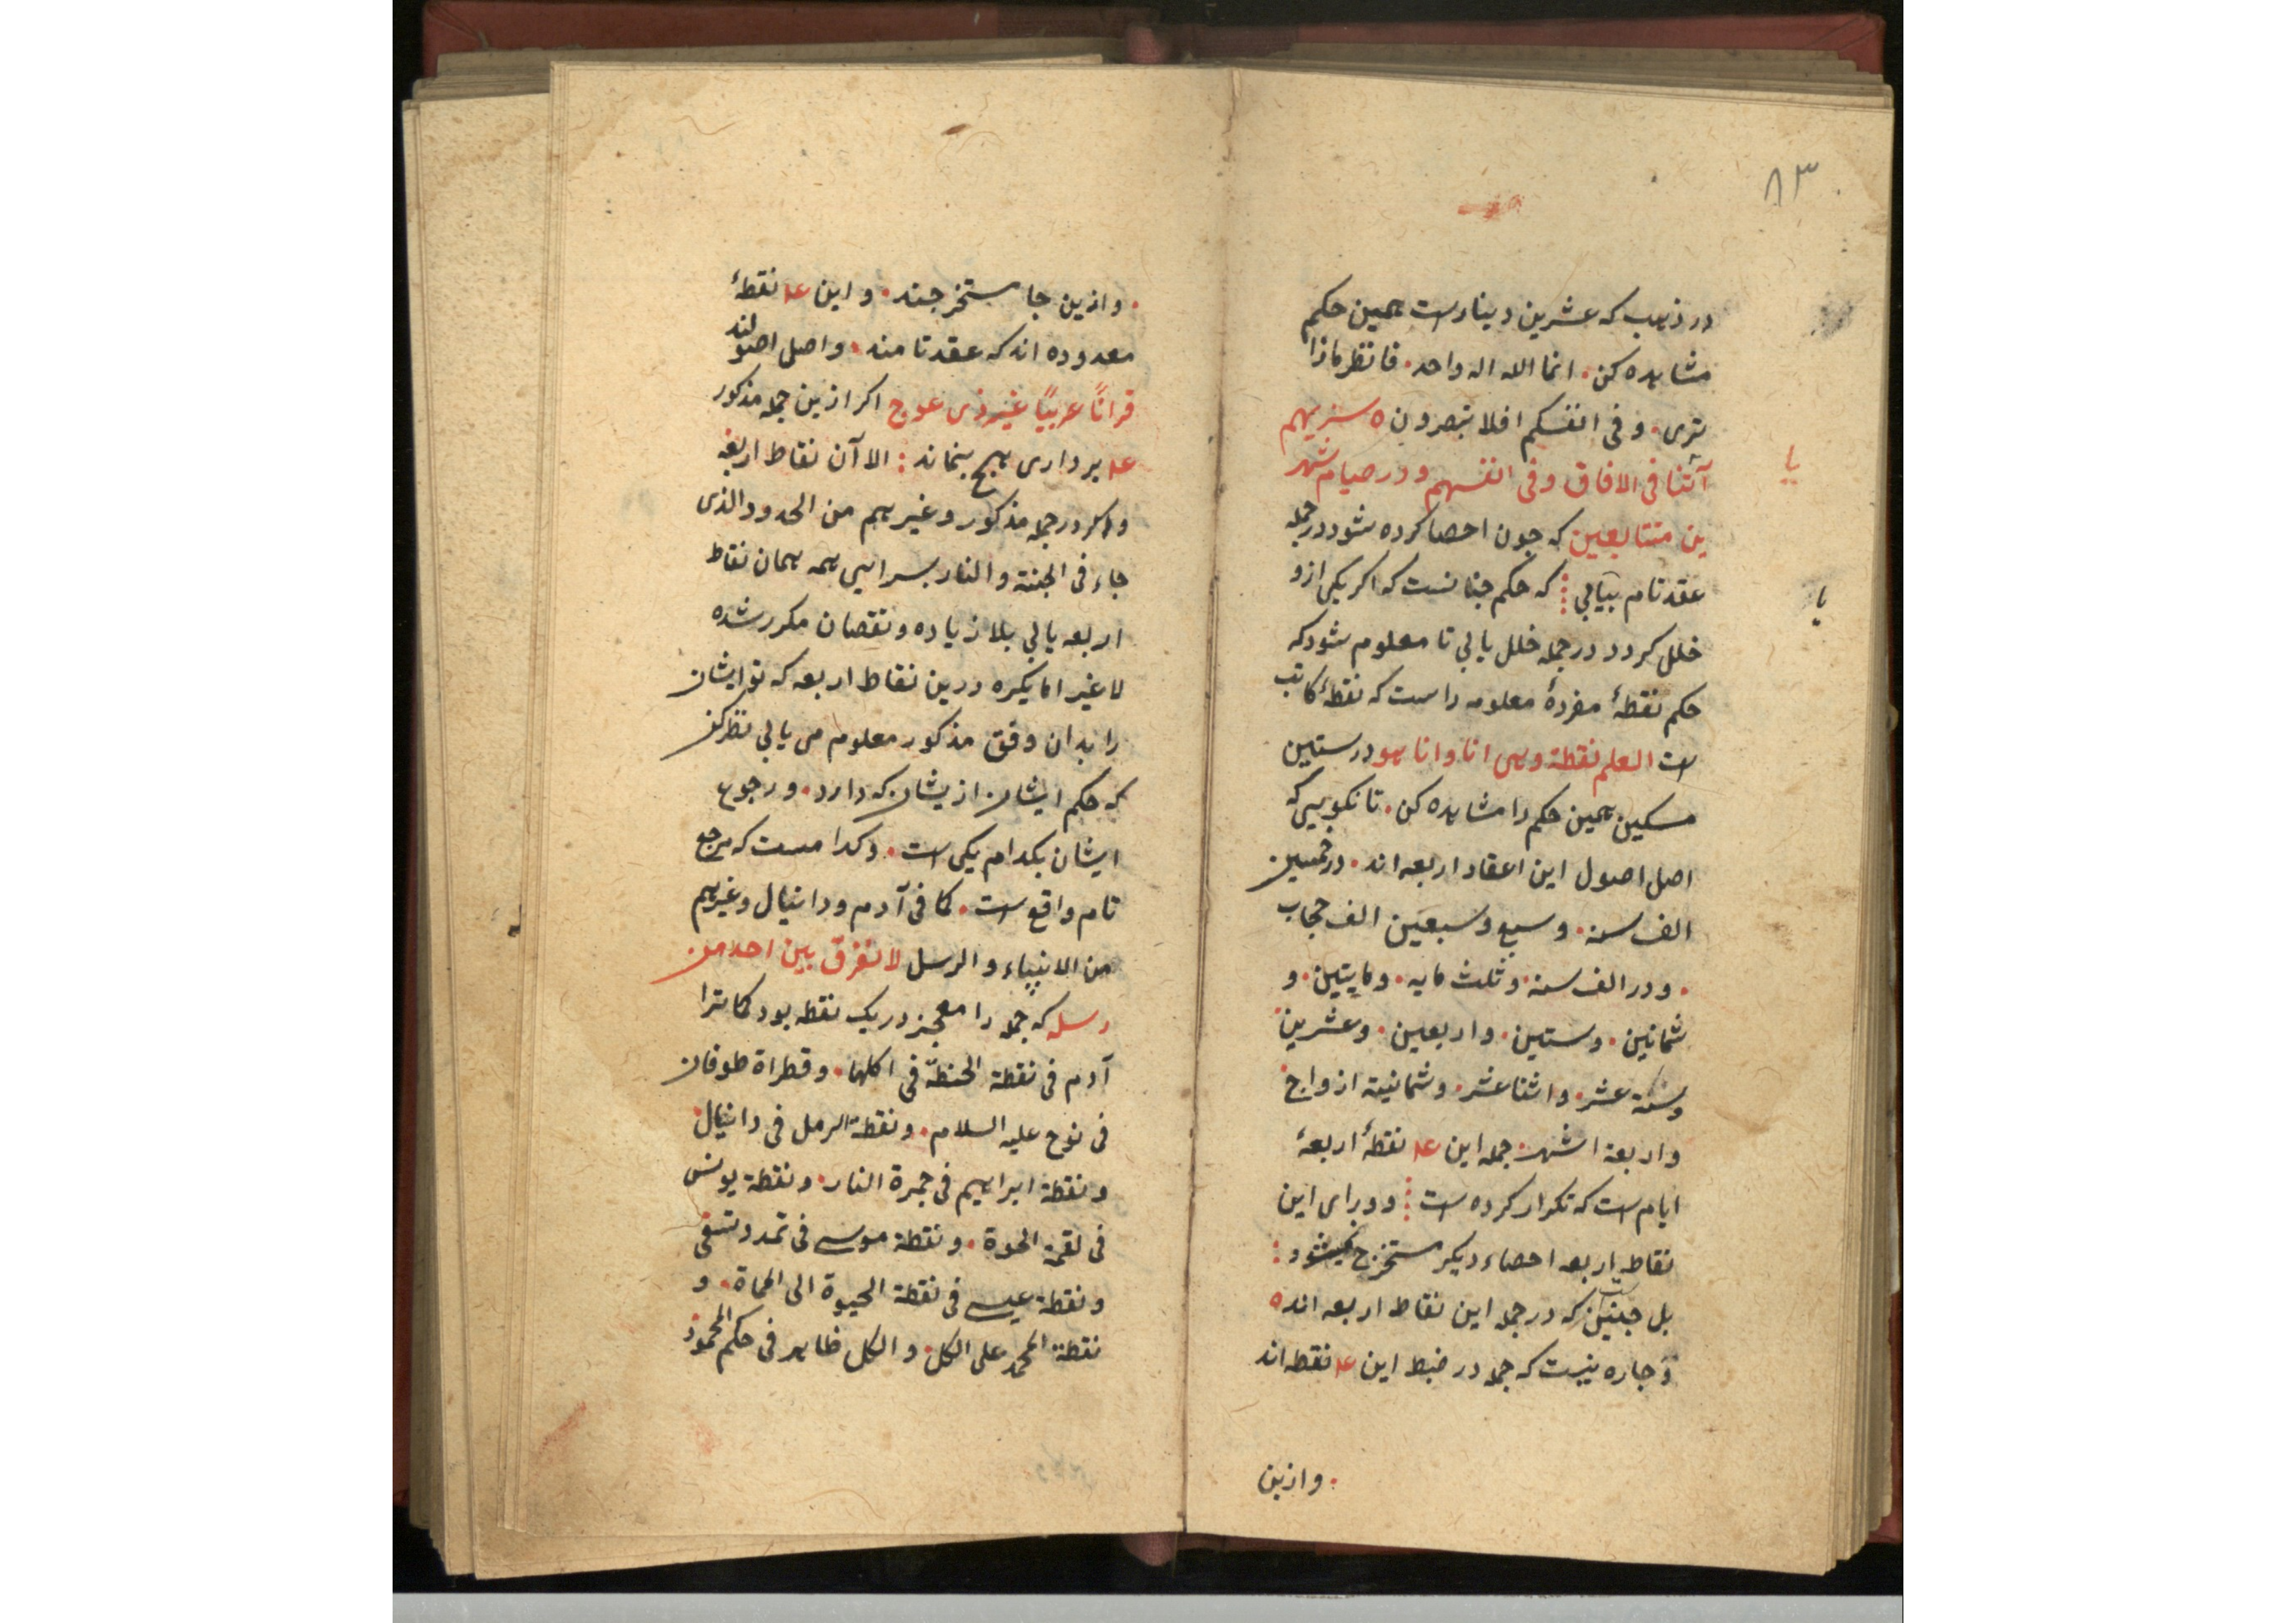 ۸۳
در ذهب که عشرین دینارست همین حکم
مشاهده کن • انما الله اله واحد • فانظر ماذا
تری • و فی انفسکم افلا تبصرون ه سنریهم
آیتنا فی الافاق و فی انفسهم و در صیام شهر
ین متتابعین که چون احصا کرده شود در جمله
عقد تام بیابی که حکم چنانست که اگر یکی ازو
خلل کردد در جمله خلل یابی تا معلوم شود که
حکم نقطهٔ مفردهٔ معلومه راست که نقطهٔ کاتب
است العلم نقطة وهی انا وانا هو در ستین
مسکین همین حکم را مشاهده کن • تا نکویی که
اصل اصول این اعقاد اربعه اند • در خمسین
الف سنه • و سبع و سبعین الف حجاب
• و در الف سنه • و ثلث مایه • و مایتین • و
ثمانین • و ستین • و اربعین • و عشرین
و ستة عشر • و اثنا عشر • و ثمانیة ازواج
و اربعة اشهر • جمله این عـه نقطهٔ اربعهٔ
ایام است که تکرار کرده است و ورای این
نقاط اربعه احصاء دیکر مستخرج نمیشود
بل چنین است که در جمله این نقاط اربعه اند ه
و چاره نیست که جمله در ضبط این عـه نقطه اند
• وازین
• وازین جا مستخرجند • و این عـه نقطهٔ
معدوده اند که عقد تامند • و اصل اصولند
قرانًا عربیًا غیر ذی عوج اکر ازین جمله مذکور
عـه برداری هیچ بنماند الا آن نقاط اربعه
و اکر در جمله مذکور و غیرهم من الحدود الذی
جاء فی الجنة و النار بسرایی همه همان نقاط
اربعه یابی بلا زیاده و نقصان مکرر شده
لا غیر اما یکره درین نقاط اربعه که تو ایشان
را بدان وفق مذکور معلوم می یابی نظر کن
که حکم ایشان از یشان که دارد • و رجوع
ایشان بکدام یکی است • و کدامست که مرجع
تام واقع است • کما فی آدم و دانیال و غیرهم
من الانبیاء و الرسل لا نفرق بین احد من
رسله که جمله را معجز در یک نقطه بود کما ترا
آدم فی نقطة الحنطة فی اکلها • و قطراة طوفان
فی نوح علیه السلام • و نقطة الرمل فی دانیال
و نقطة ابراهیم فی جمرة النار • و نقطة یونس
فی لقمة الحوة • و نقطة موسی فی تمد و تسقی
و نقطة عیسی فی نقطة الحیوة الی المماة • و
نقطة المحمد علی الکل • و الکل ظاهر فی حکم المحمود